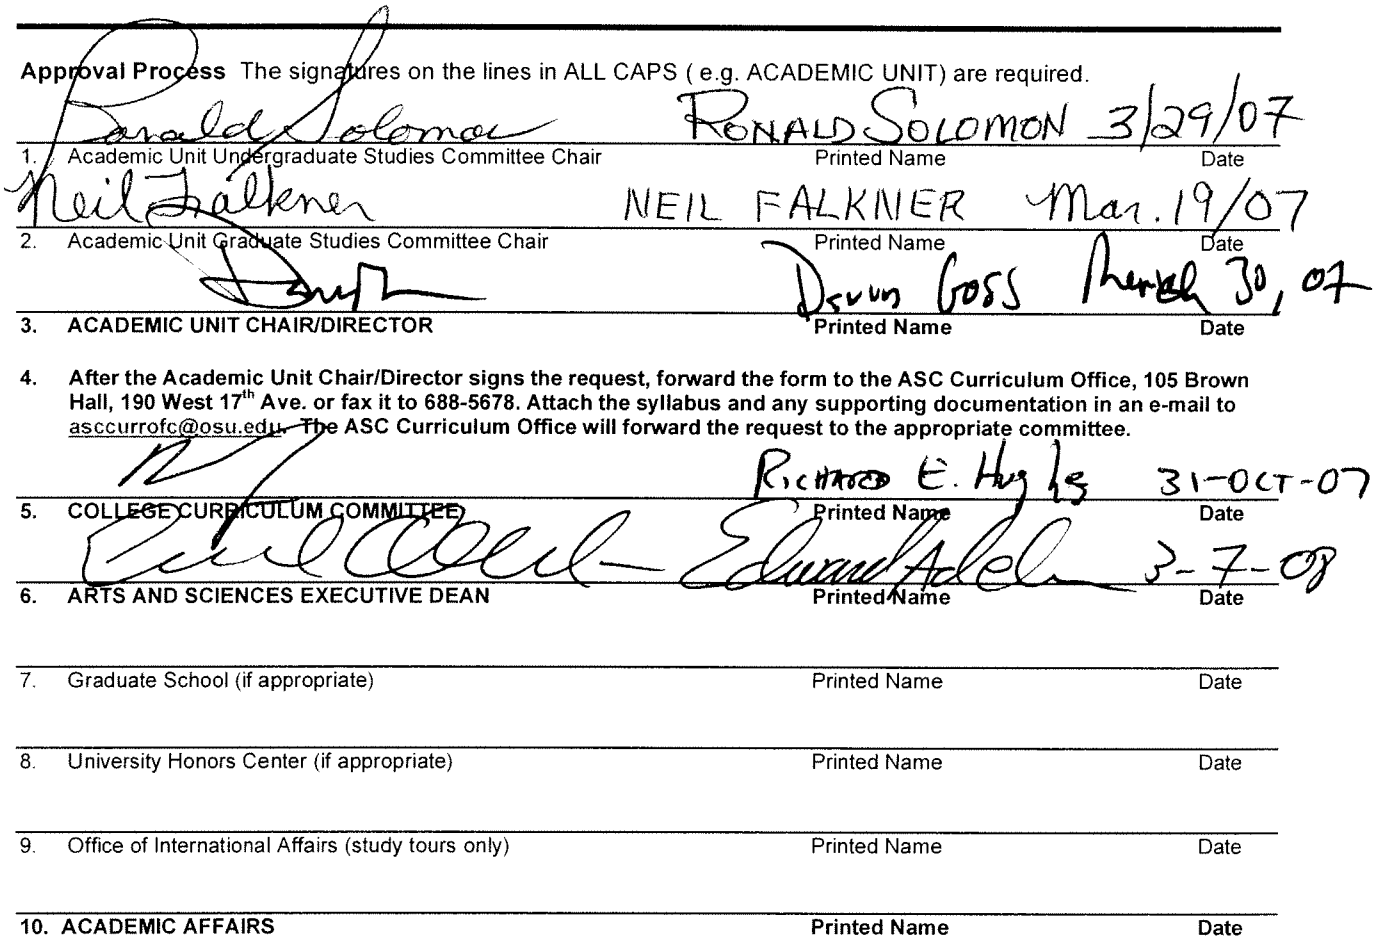 Approval Process The signatures on the lines in ALL CAPS ( e.g. ACADEMIC UNIT) are required.
Ronald Solomon RONALD SOLOMON 3/29/07
1. Academic Unit Undergraduate Studies Committee Chair Printed Name Date
Neil Falkner NEIL FALKNER Mar. 19/07
2. Academic Unit Graduate Studies Committee Chair Printed Name Date
Goss March 30, 07
3. ACADEMIC UNIT CHAIR/DIRECTOR Printed Name Date
4. After the Academic Unit Chair/Director signs the request, forward the form to the ASC Curriculum Office, 105 Brown
Hall, 190 West 17th Ave. or fax it to 688-5678. Attach the syllabus and any supporting documentation in an e-mail to
asccurrofc@osu.edu. The ASC Curriculum Office will forward the request to the appropriate committee.
RICHARD E. Hughes 31-OCT-07
5. COLLEGE CURRICULUM COMMITTEE Printed Name Date
Edward Adel 3-7-08
6. ARTS AND SCIENCES EXECUTIVE DEAN Printed Name Date
7. Graduate School (if appropriate) Printed Name Date
8. University Honors Center (if appropriate) Printed Name Date
9. Office of International Affairs (study tours only) Printed Name Date
10. ACADEMIC AFFAIRS Printed Name Date